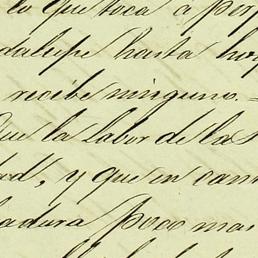 lo que toca a per
dalupe hasta hoy
recibe ninguno.=
Que la labor de las
dad, y que en cam
ladura poco mas